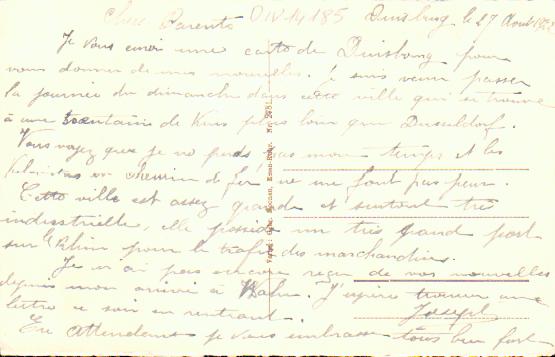 Chers Parents OIV 14185 Duisburg le 27 Août
Je vous envoi une carte de Duisbourg pour
vous donner de mes nouvelles. Je suis venu passer
la journée du dimanche dans cette ville qui se trouve
à une trentaine de Kms plus loin que Dusseldorf.
Vous voyez que je ne perds pas mon temps et les
en chemin de fer ne me font pas peur.
Cette ville est assez grande et surtout très
industrielle, elle possède un très grand port
sur le Rhin pour le trafic des marchandises.
Je n'ai pas encore reçu de vos nouvelles
depuis mon arrivée à J'espère trouver une
lettre ce soir en rentrant. Joseph
En attendant je vous embrasse tous bien fort